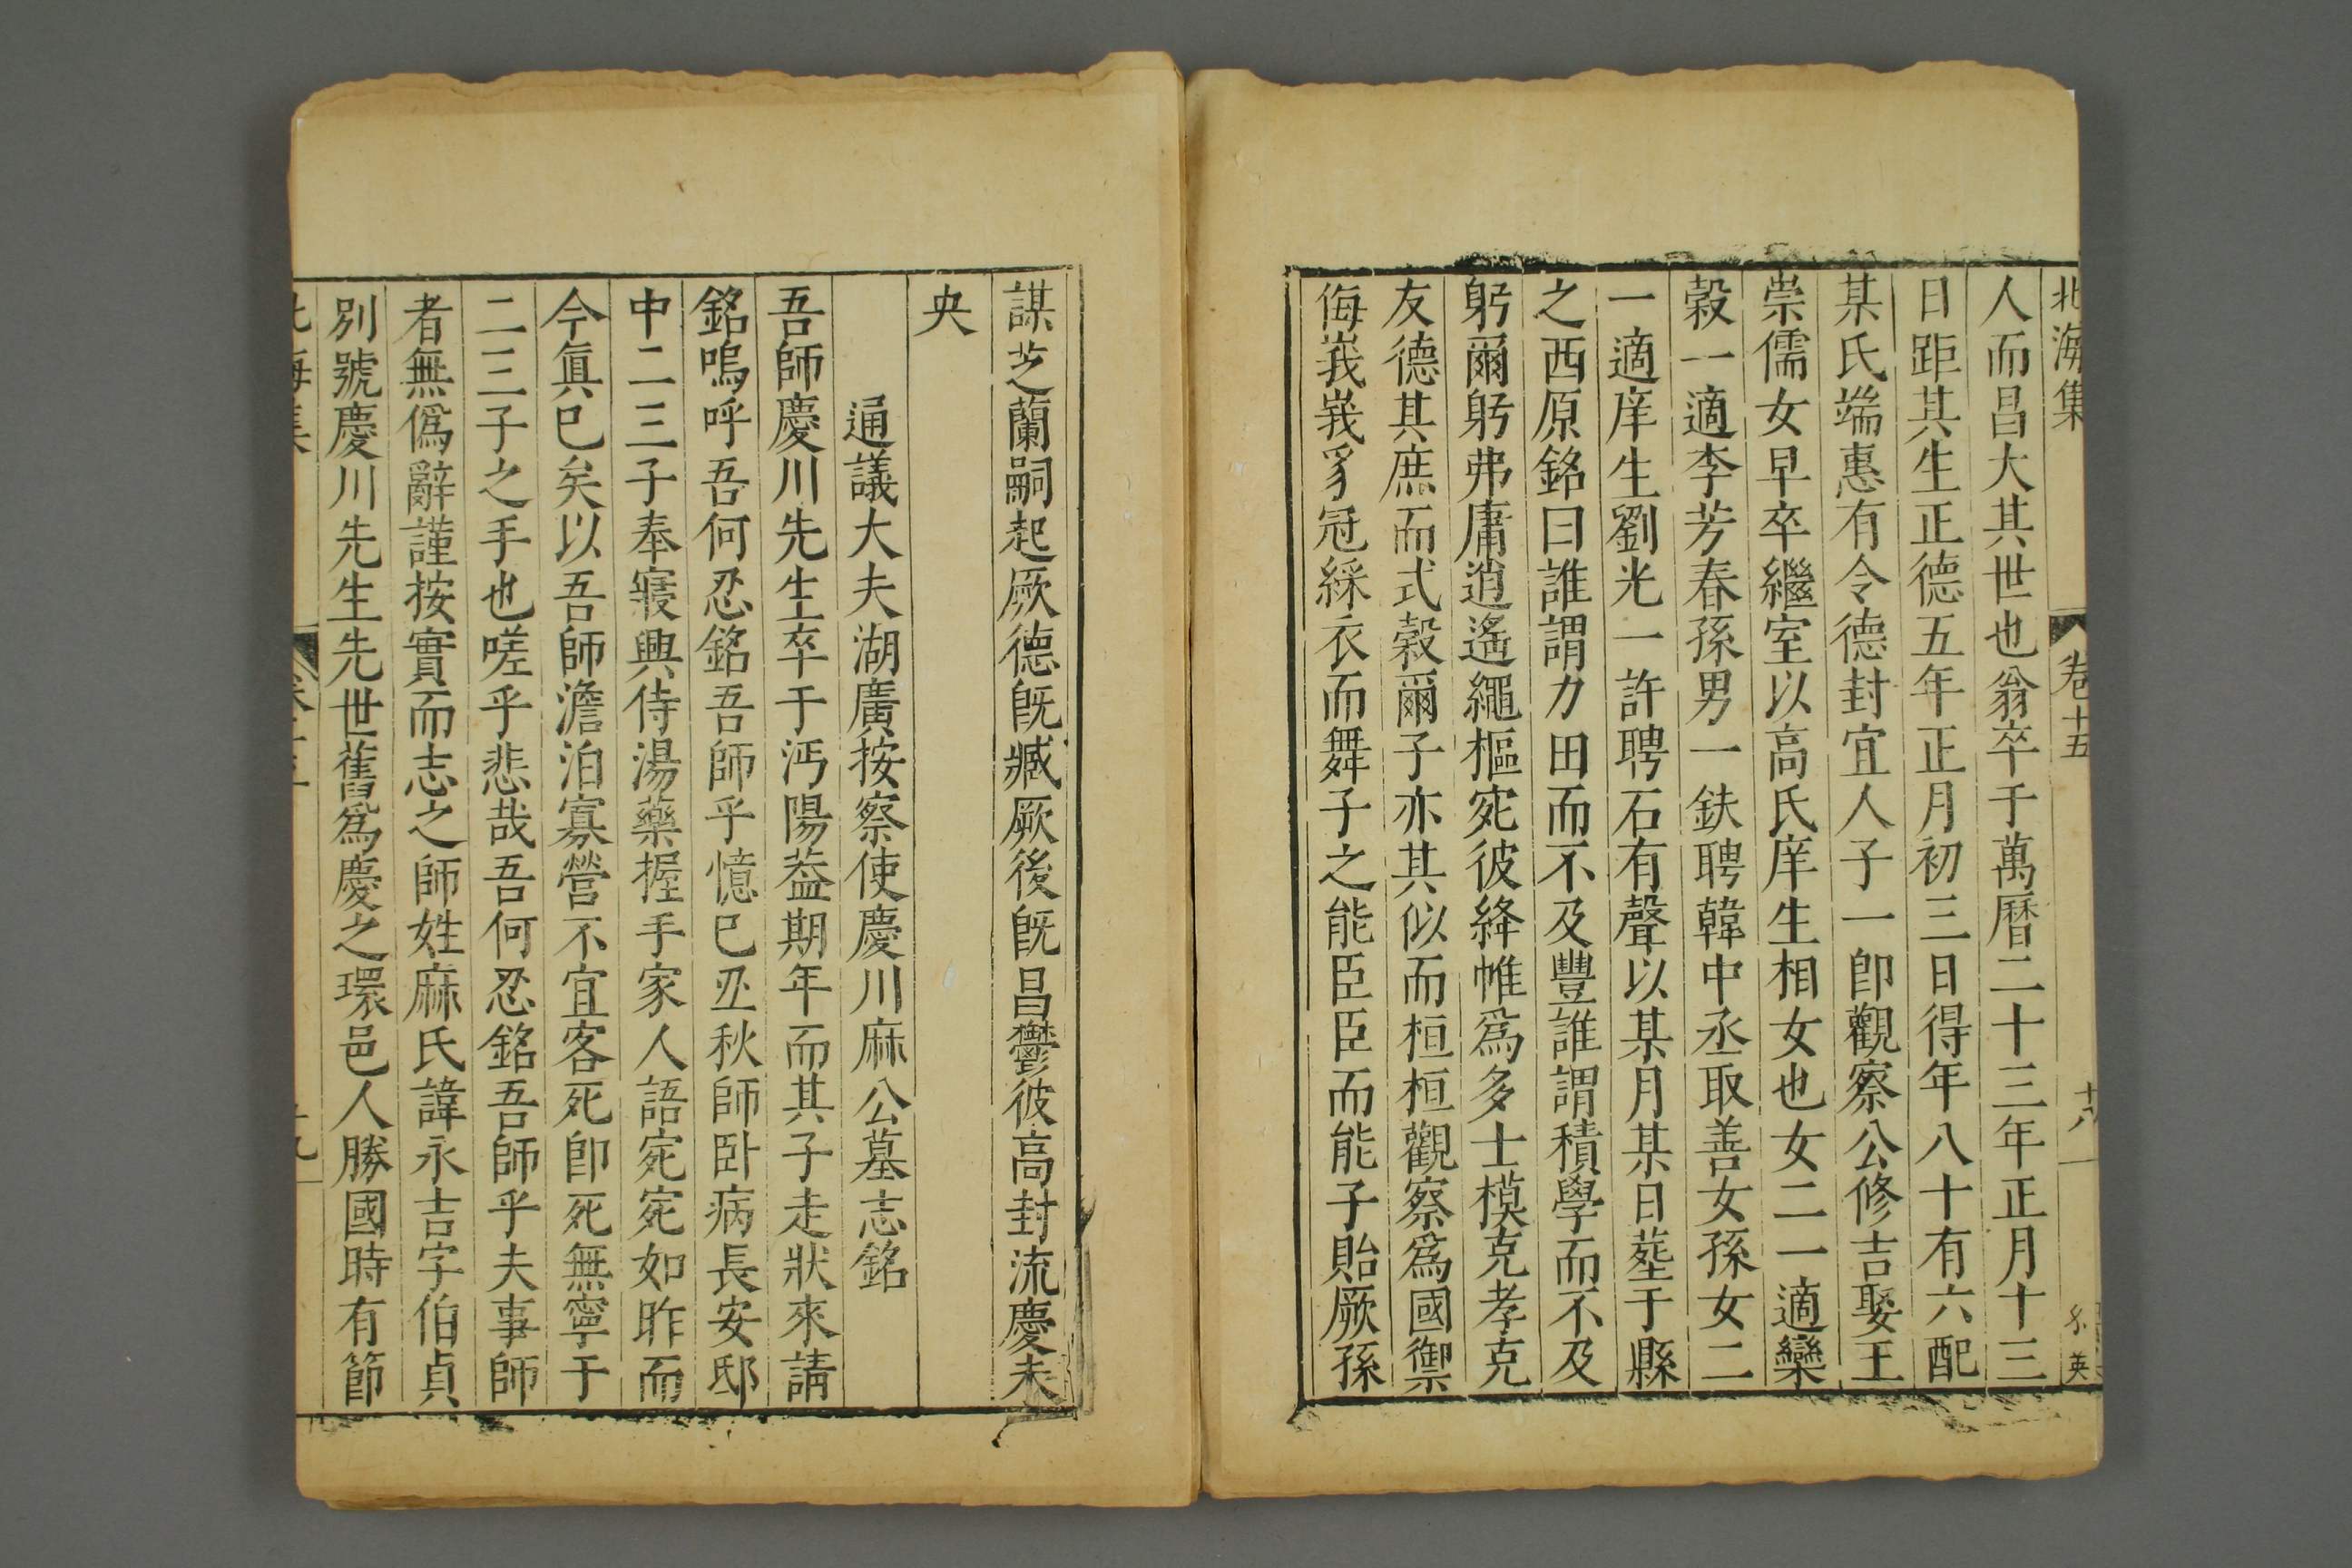 北海集 卷十五 十八
人而昌大其世也翁卒于萬曆二十三年正月十三
日距其生正德五年正月初三日得年八十有六配
某氏端惠有令德封宜人子一卽觀察公修吉娶王
崇儒女早卒繼室以高氏庠生相女也女二一適欒
穀一適李芳春孫男一鈇聘韓中丞取善女孫女二
一適庠生劉光一許聘石有聲以某月某日塟于縣
之西原銘曰誰謂力田而不及豐誰謂積學而不及
躬爾躬弗庸逍遙繩樞宛彼絳帷爲多士模克孝克
友德其庶而式穀爾子亦其似而桓桓觀察爲國禦
侮峩峩豸冠綵衣而舞子之能臣臣而能子貽厥孫
謀芝蘭嗣起厥德旣臧厥後旣昌鬱彼高封流慶未
央
通議大夫湖廣按察使慶川麻公墓志銘
吾師慶川先生卒于沔陽葢期年而其子走狀來請
銘嗚呼吾何忍銘吾師乎憶巳丑秋師臥病長安邸
中二三子奉寢興侍湯藥握手家人語宛宛如昨而
今眞巳矣以吾師澹泊寡營不宜客死卽死無寧于
二三子之手也嗟乎悲哉吾何忍銘吾師乎夫事師
者無僞辭謹按實而志之師姓麻氏諱永吉字伯貞
別號慶川先生先世舊爲慶之環邑人勝國時有節
北海集 卷十五 十九